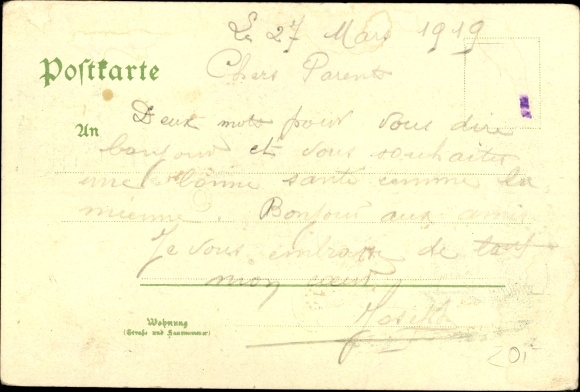 Le 27 Mars 1919
Postkarte
Chers Parents
An
Deux mots pour vous dire
bonjour et vous souhaiter
une bonne santé comme la
mienne. Bonjour aux amis
Je vous embrasse de tout
mon cœur
Wohnung
(Straße und Hausnummer)
20,-